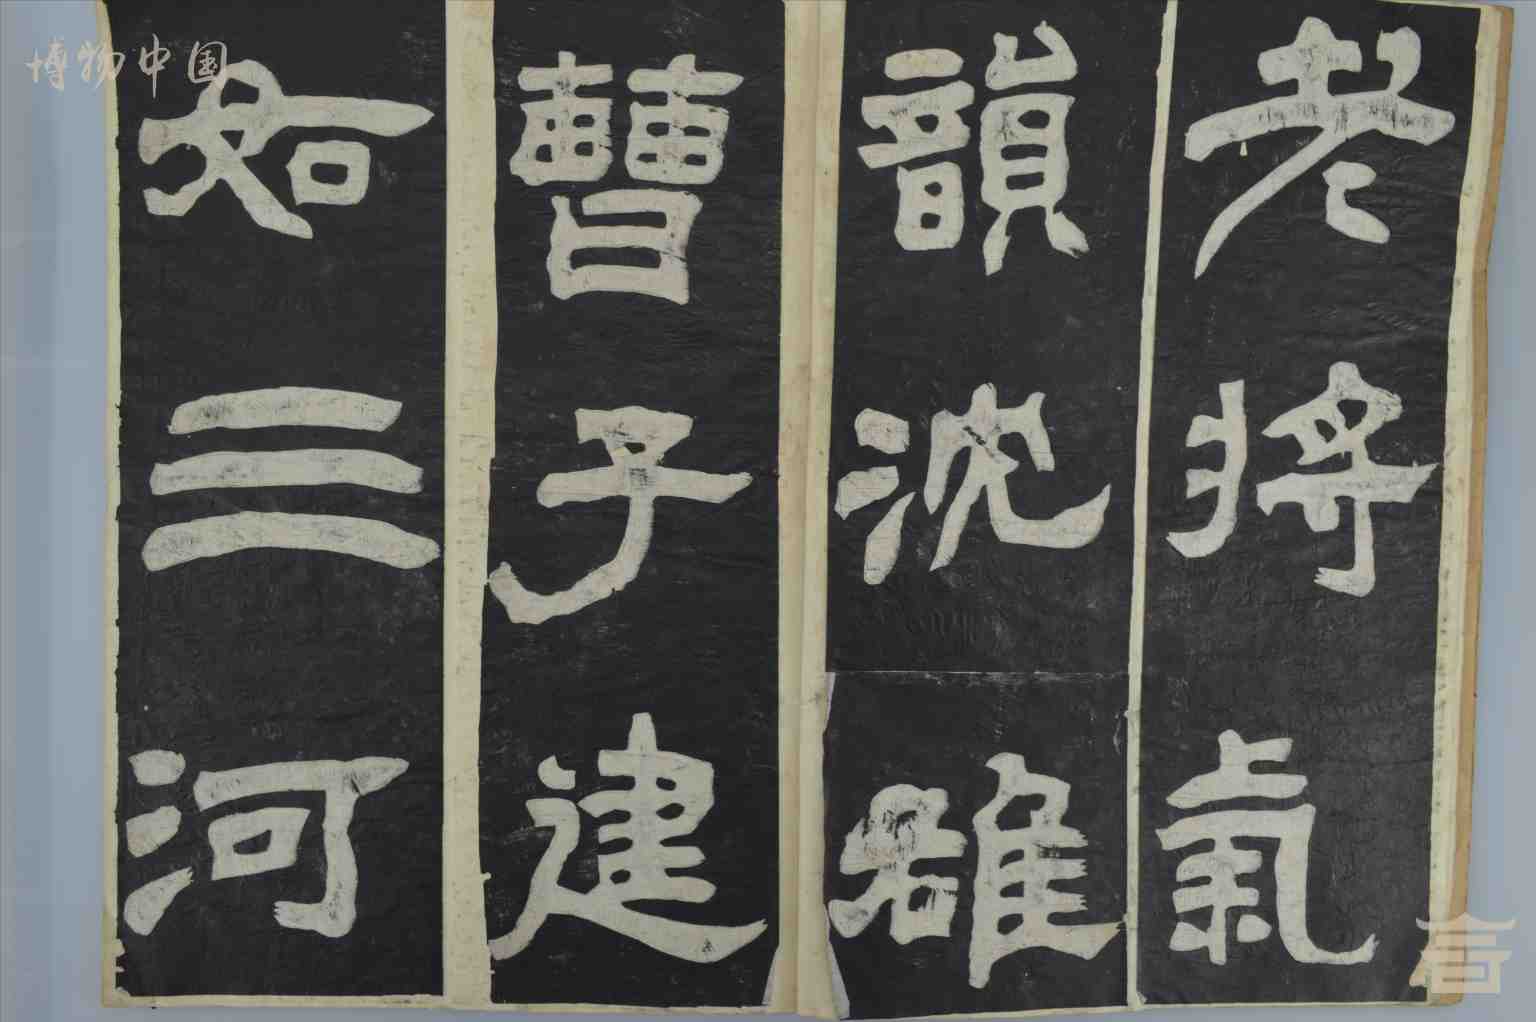 老將氣
韻沈雄
曹子建
如三河
博物中国